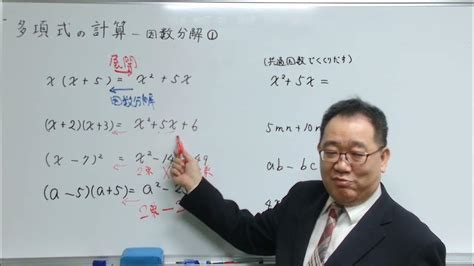 多項式の計算 － 因数分解①
展開
x(x+5) = x²+5x
因数分解
(x+2)(x+3) = x²+5x+6
(x-7)² = x²-14 49
2乗 2乗
(a-5)(a+5) = a²-2
2乗-2
(共通因数でくくりだす)
x²+5x =
5mn+10m
ab-bc
4x